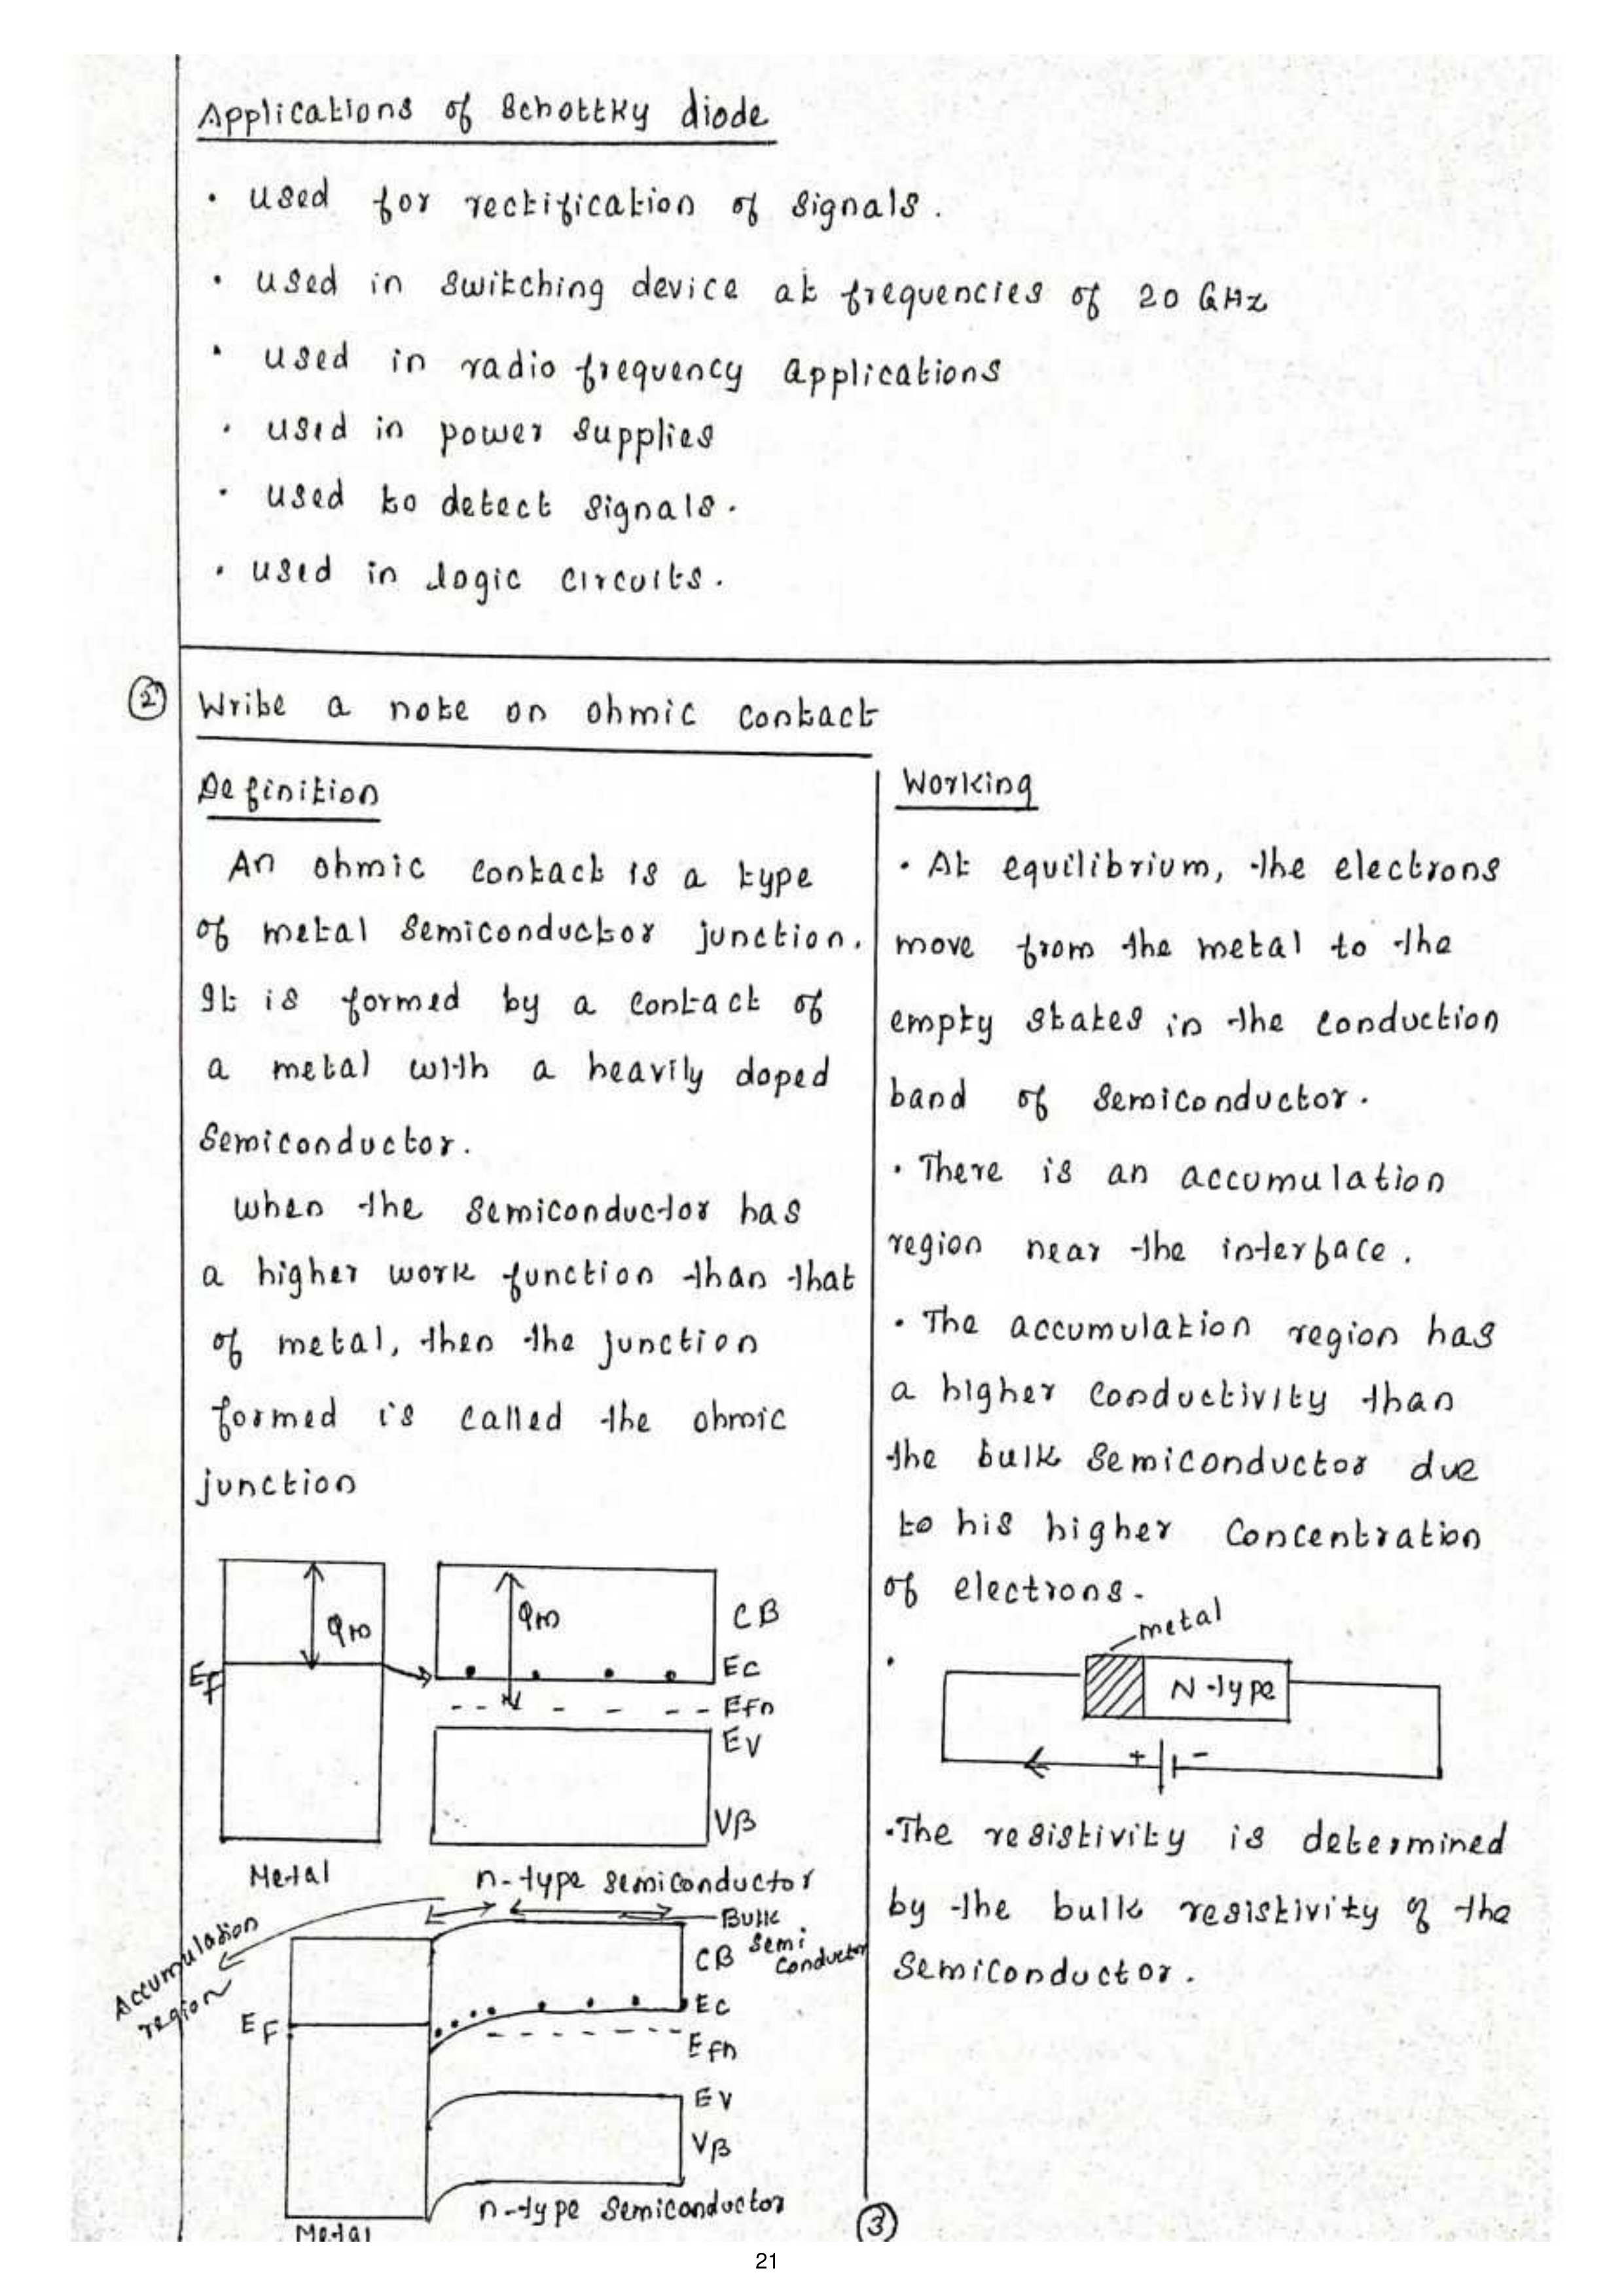 Applications of Schottky diode
• used for rectification of signals.
• used in switching device at frequencies of 20 GHz
• used in radio frequency applications
• used in power supplies
• used to detect signals.
• used in logic circuits.
② Write a note on ohmic contact
Definition
An ohmic contact is a type
of metal semiconductor junction.
It is formed by a contact of
a metal with a heavily doped
semiconductor.
when the semiconductor has
a higher work function than that
of metal, then the junction
formed is called the ohmic
junction
φm
φm
CB
EF
Ec
Efn
EV
VB
Metal
n-type semiconductor
Accumulation
region
Bulk
Semi
Conductor
CB
Ec
EF
Efn
EV
VB
n-type semiconductor
Metal
Working
• At equilibrium, the electrons
move from the metal to the
empty states in the conduction
band of semiconductor.
• There is an accumulation
region near the interface.
• The accumulation region has
a higher conductivity than
the bulk semiconductor due
to his higher concentration
of electrons.
•
metal
N-type
+ -
• The resistivity is determined
by the bulk resistivity of the
semiconductor.
③
21